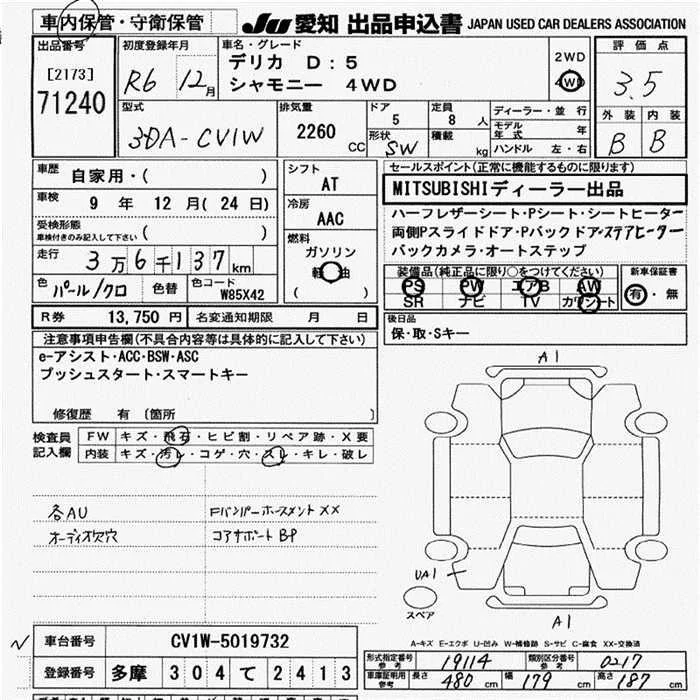 車内保管・守衛保管
JU 愛知 出品申込書 JAPAN USED CAR DEALERS ASSOCIATION
出品番号
[2173]
71240
初度登録年月
R6 12月
車名・グレード
デリカ D:5
シャモニー 4WD
2WD
4WD
評価点
3.5
外装 内装
B B
型式
3DA-CV1W
排気量
2260 CC
ドア
5
形状
SW
定員
8 人
積載
kg
ディーラー・並行
モデル年式 年
ハンドル 左・右
車歴
自家用・( )
車検
9年 12月(24日)
受検形態
車検付きのみ記入して下さい ( )
走行
3万6千137km
色 パール/クロ 色替 色コード W85X42
シフト
AT
冷房
AAC
燃料
ガソリン
軽油
( )
セールスポイント(正常に機能するものに限ります)
MITSUBISHIディーラー出品
ハーフレザーシート・Pシート・シートヒーター
両側Pスライドドア・Pバックドア・ステアヒーター
バックカメラ・オートステップ
装備品(純正品に限り○をつけてください)
PS PW エアB AW
SR ナビ TV カワシート
新車保証書
有・無
R券 13,750円 名変通知期限 月 日
後日品
保・取・Sキー
注意事項申告欄(不具合内容等は具体的に記入して下さい)
e-アシスト・ACC・BSW・ASC
プッシュスタート・スマートキー
修復歴 有 〔箇所 〕
検査員記入欄
FW キズ・飛石・ヒビ割・リペア跡・X要
内装 キズ・汚レ・コゲ・穴・スレ・キレ・破レ
各AU
オーディオ欠穴
Fバンパーホースメント XX
コアサポート BP
A1
UA1
A1
スペア
A-キズ E-エクボ U-凹み W-補修跡 S-サビ C-腐食 XX-交換済
車台番号 CV1W-5019732
登録番号 多摩 304 て 2413
形式指定番号 参考 19114
類別区分番号 参考 0217
車庫証明用 参考 長さ 480 cm 幅 179 cm 高さ 187 cm